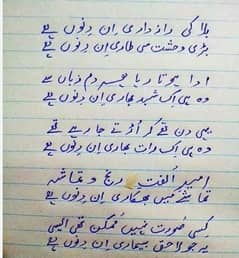 بلا کی رازداری اِن دِنوں ہے
بڑی وحشت سی طاری اِن دِنوں ہے
ادا ہوتا رہا جیسے دم زباں سے
وہ ہی اک شہد بھاری اِن دِنوں ہے
یہی دن تھے کہ اُڑتے جا رہے تھے
وہ ہی اک رات بھاری اِن دِنوں ہے
امیدِ اُلفت رنج و تماشہ
تماشے میں بھکاری اِن دِنوں ہے
کسی صُورت نہیں مُمکن تھی ایسی
یہ جو لاحق بیماری اِن دِنوں ہے